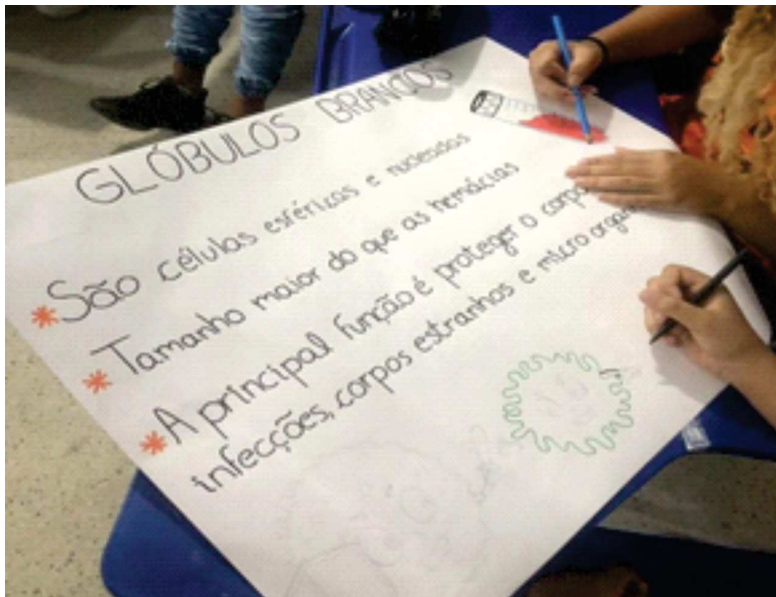 GLÓBULOS BRANCOS
* São células esféricas e nucleadas
* Tamanho maior do que as hemácias
* A principal função é proteger o corpo
infecções, corpos estranhos e micro